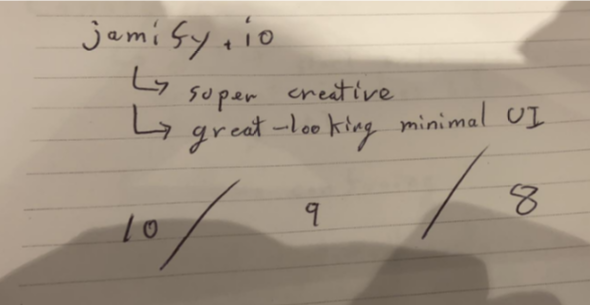 jamify.io
↳ super creative
↳ great-looking minimal UI
10 / 9 / 8